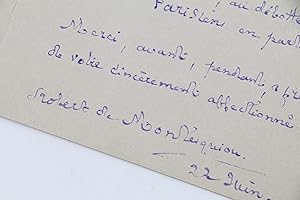 ! au débotté
Parisiens en part
Merci, avant, pendant, apr
de votre sincèrement affectionné
Robert de Montesquiou.
22 Juin.